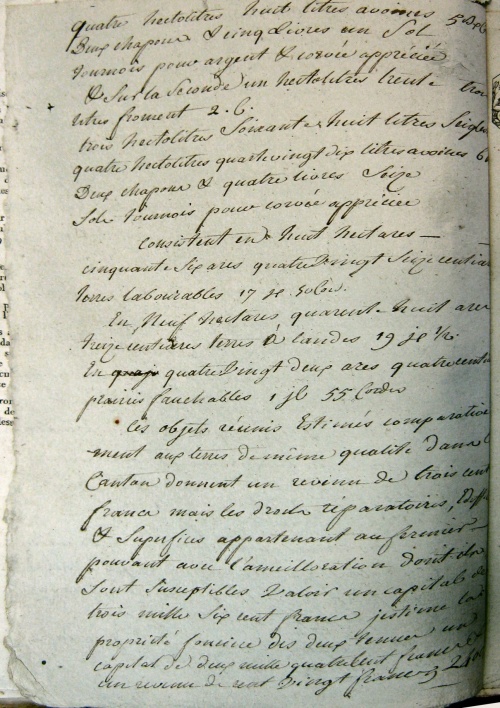 quatre hectolitres huit litres avoines 5
Deux chapons & cinq Livres un Sol
tournois pour argent & corvée appréciée
& Sur la Seconde un hectolitres trente
litres froment 2. b.
trois hectolitres Soixante huit litres Seigle
quatre hectolitres quatrevingt dix litres avoines 6
Deux chapons & quatre livres Seize
Sols tournois pour corvée appréciée
consistent en huit hectares
cinquante Six ares quatre vingt Seize centiar
terres labourables 17 je. 50 Cor.
En Neuf hectares quarente huit are
treize centiares terres à landes 19 je ½.
En quatre Vingt deux ares quatre centi
prairies fauchables 1 jl 55 Cordes
Ces objets réunis Estimés comparative
ment aux terres de même qualité dans
Canton donnent un revenu de trois cent
francs mais les droits réparatoires,
& Superfices appartenant au fermier
pouvant avec l'amélioration dont ils
Sont Susceptibles Valoir un capital de
trois mille Six cent francs j'estime la
propriété foncière des deux tenues un
capital de deux mille quatre cent francs
un revenu de cent Vingt francs